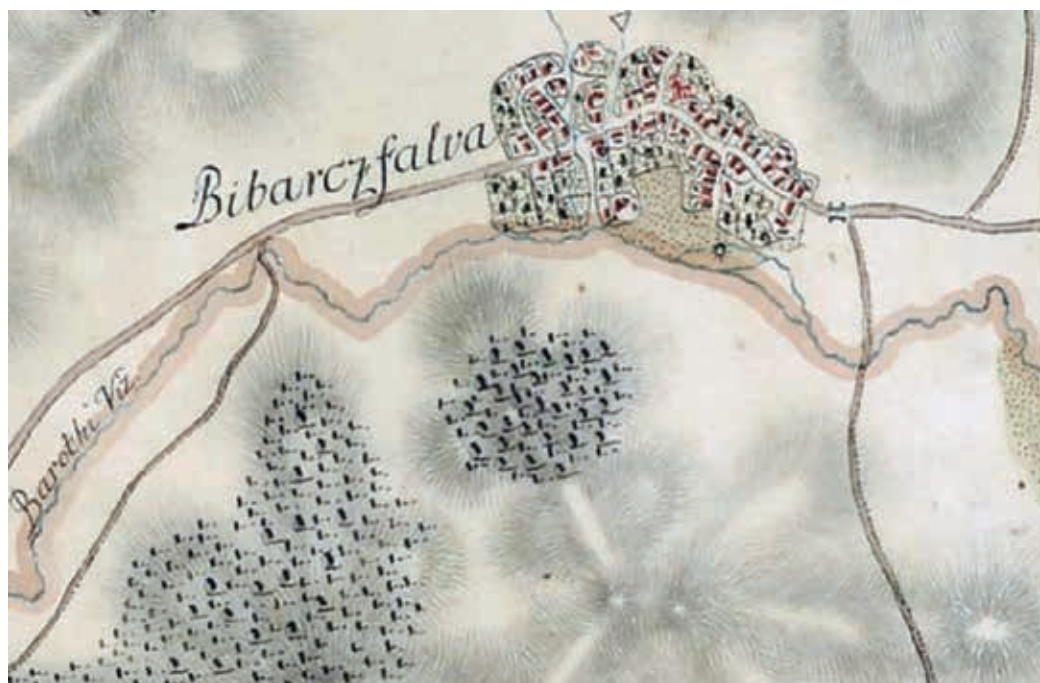 Bibarczfalva
Barothi Viz